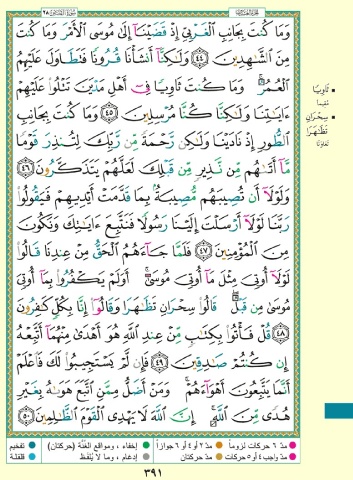 سُورَةُ القَصَصِ ٢٨
الجُزْءُ العِشْرُونَ
وَمَا كُنتَ بِجَانِبِ ٱلْغَرْبِيِّ إِذْ قَضَيْنَآ إِلَىٰ مُوسَى ٱلْأَمْرَ وَمَا كُنتَ
مِنَ ٱلشَّٰهِدِينَ ٤٤ وَلَٰكِنَّآ أَنشَأْنَا قُرُونًا فَتَطَاوَلَ عَلَيْهِمُ
ٱلْعُمُرُ ۚ وَمَا كُنتَ ثَاوِيًا فِىٓ أَهْلِ مَدْيَنَ تَتْلُوا۟ عَلَيْهِمْ
ءَايَٰتِنَا وَلَٰكِنَّا كُنَّا مُرْسِلِينَ ٤٥ وَمَا كُنتَ بِجَانِبِ
ٱلطُّورِ إِذْ نَادَيْنَا وَلَٰكِن رَّحْمَةً مِّن رَّبِّكَ لِتُنذِرَ قَوْمًا
مَّآ أَتَىٰهُم مِّن نَّذِيرٍ مِّن قَبْلِكَ لَعَلَّهُمْ يَتَذَكَّرُونَ ٤٦
وَلَوْلَآ أَن تُصِيبَهُم مُّصِيبَةٌۢ بِمَا قَدَّمَتْ أَيْدِيهِمْ فَيَقُولُوا۟
رَبَّنَا لَوْلَآ أَرْسَلْتَ إِلَيْنَا رَسُولًا فَنَتَّبِعَ ءَايَٰتِكَ وَنَكُونَ
مِنَ ٱلْمُؤْمِنِينَ ٤٧ فَلَمَّا جَآءَهُمُ ٱلْحَقُّ مِنْ عِندِنَا قَالُوا۟
لَوْلَآ أُوتِىَ مِثْلَ مَآ أُوتِىَ مُوسَىٰٓ ۚ أَوَلَمْ يَكْفُرُوا۟ بِمَآ أُوتِىَ
مُوسَىٰ مِن قَبْلُ ۖ قَالُوا۟ سِحْرَانِ تَظَٰهَرَا وَقَالُوٓا۟ إِنَّا بِكُلٍّ كَٰفِرُونَ
٤٨ قُلْ فَأْتُوا۟ بِكِتَٰبٍ مِّنْ عِندِ ٱللَّهِ هُوَ أَهْدَىٰ مِنْهُمَآ أَتَّبِعْهُ
إِن كُنتُمْ صَٰدِقِينَ ٤٩ فَإِن لَّمْ يَسْتَجِيبُوا۟ لَكَ فَٱعْلَمْ
أَنَّمَا يَتَّبِعُونَ أَهْوَآءَهُمْ ۚ وَمَنْ أَضَلُّ مِمَّنِ ٱتَّبَعَ هَوَىٰهُ بِغَيْرِ
هُدًى مِّنَ ٱللَّهِ ۚ إِنَّ ٱللَّهَ لَا يَهْدِى ٱلْقَوْمَ ٱلظَّٰلِمِينَ ٥٠
ثَاوِيًا
مُقِيمًا
سِحْرَانِ
تَظَٰهَرَا
تَعَاوَنَا
مدّ ٦ حركات لزوماً
مدّ ٢ أو ٤ أو ٦ جوازاً
إخفاء، ومواقع الغنّة (حركتان)
تفخيم
مدّ واجب ٤ أو ٥ حركات
مدّ حركتان
إدغام، وما لا يُلفظ
قلقلة
٣٩١